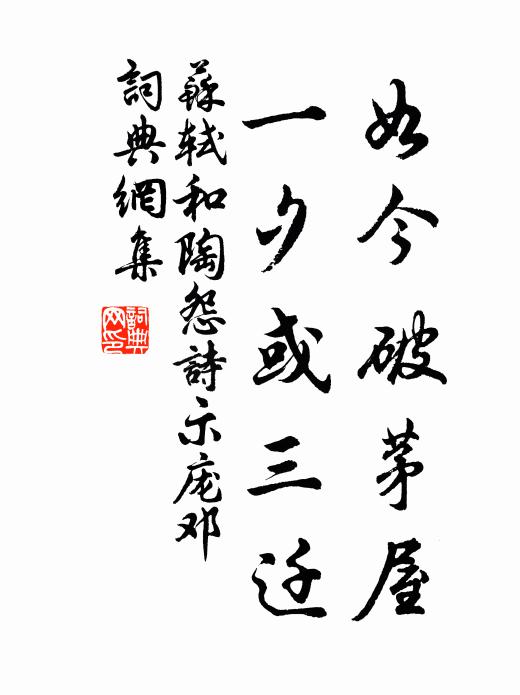 如今破茅屋
一夕或三迁
蘇軾和陶怨詩示庞邓
詞典網集
詞典网印